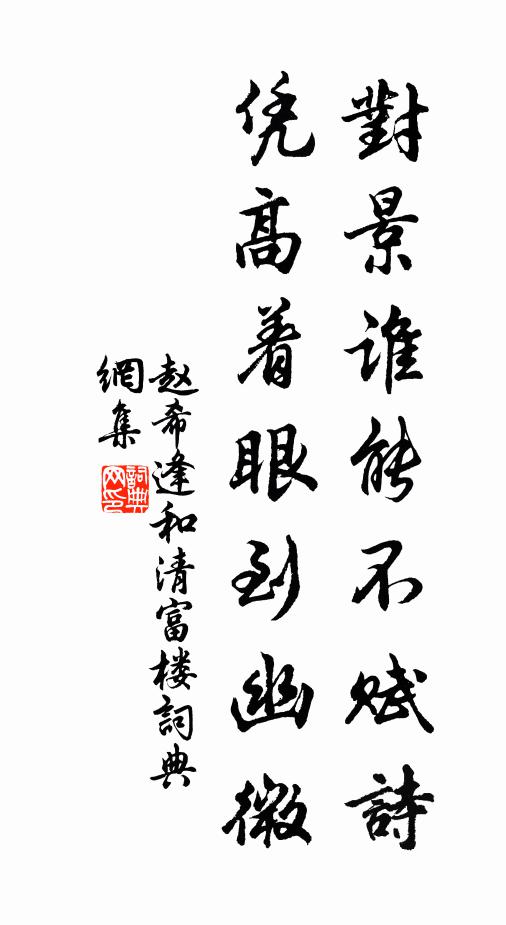 對景谁能不赋詩
凭高着眼到幽微
赵希逢和清富楼詞典
網集
詞典
网印